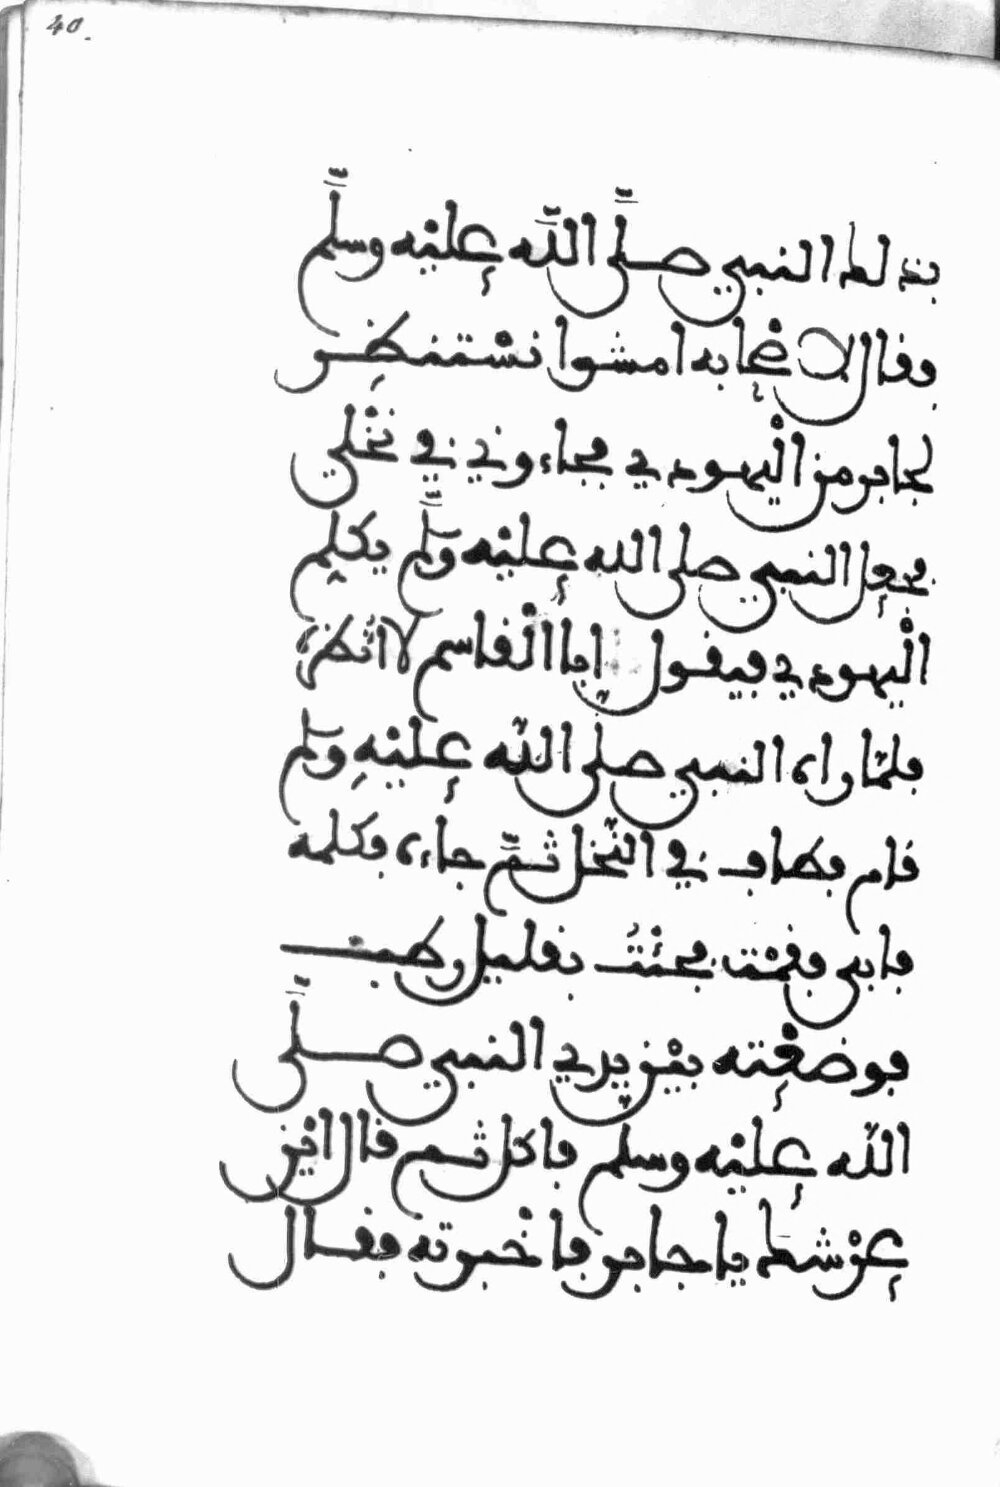 40.
بذلك النبي صلَّى اللّه عليْه وسلَّم
فقال لاصْحابه امشوا نسْتنظر
لجابر من الْيهودي فجاءوني في نخْلي
فجعل النبي صلى الله عليْه وسَلَّم يكلِم
الْيهودي فيقول ابا الْقاسم لا انْظره
فلمّا راه النبي صلى اللّه عليْهِ وسَلم
قام فطاف في النّخل ثمَّ جاءه فكلمه
فابى فقمْت فجئْتُ بقليل رطب
فوضعْته بيْن يدي النبي صلَّى
اللّه عليْه وسلم فاكل ثم قال ايْن
عرْشك يا جابر فاخْبرته فقال